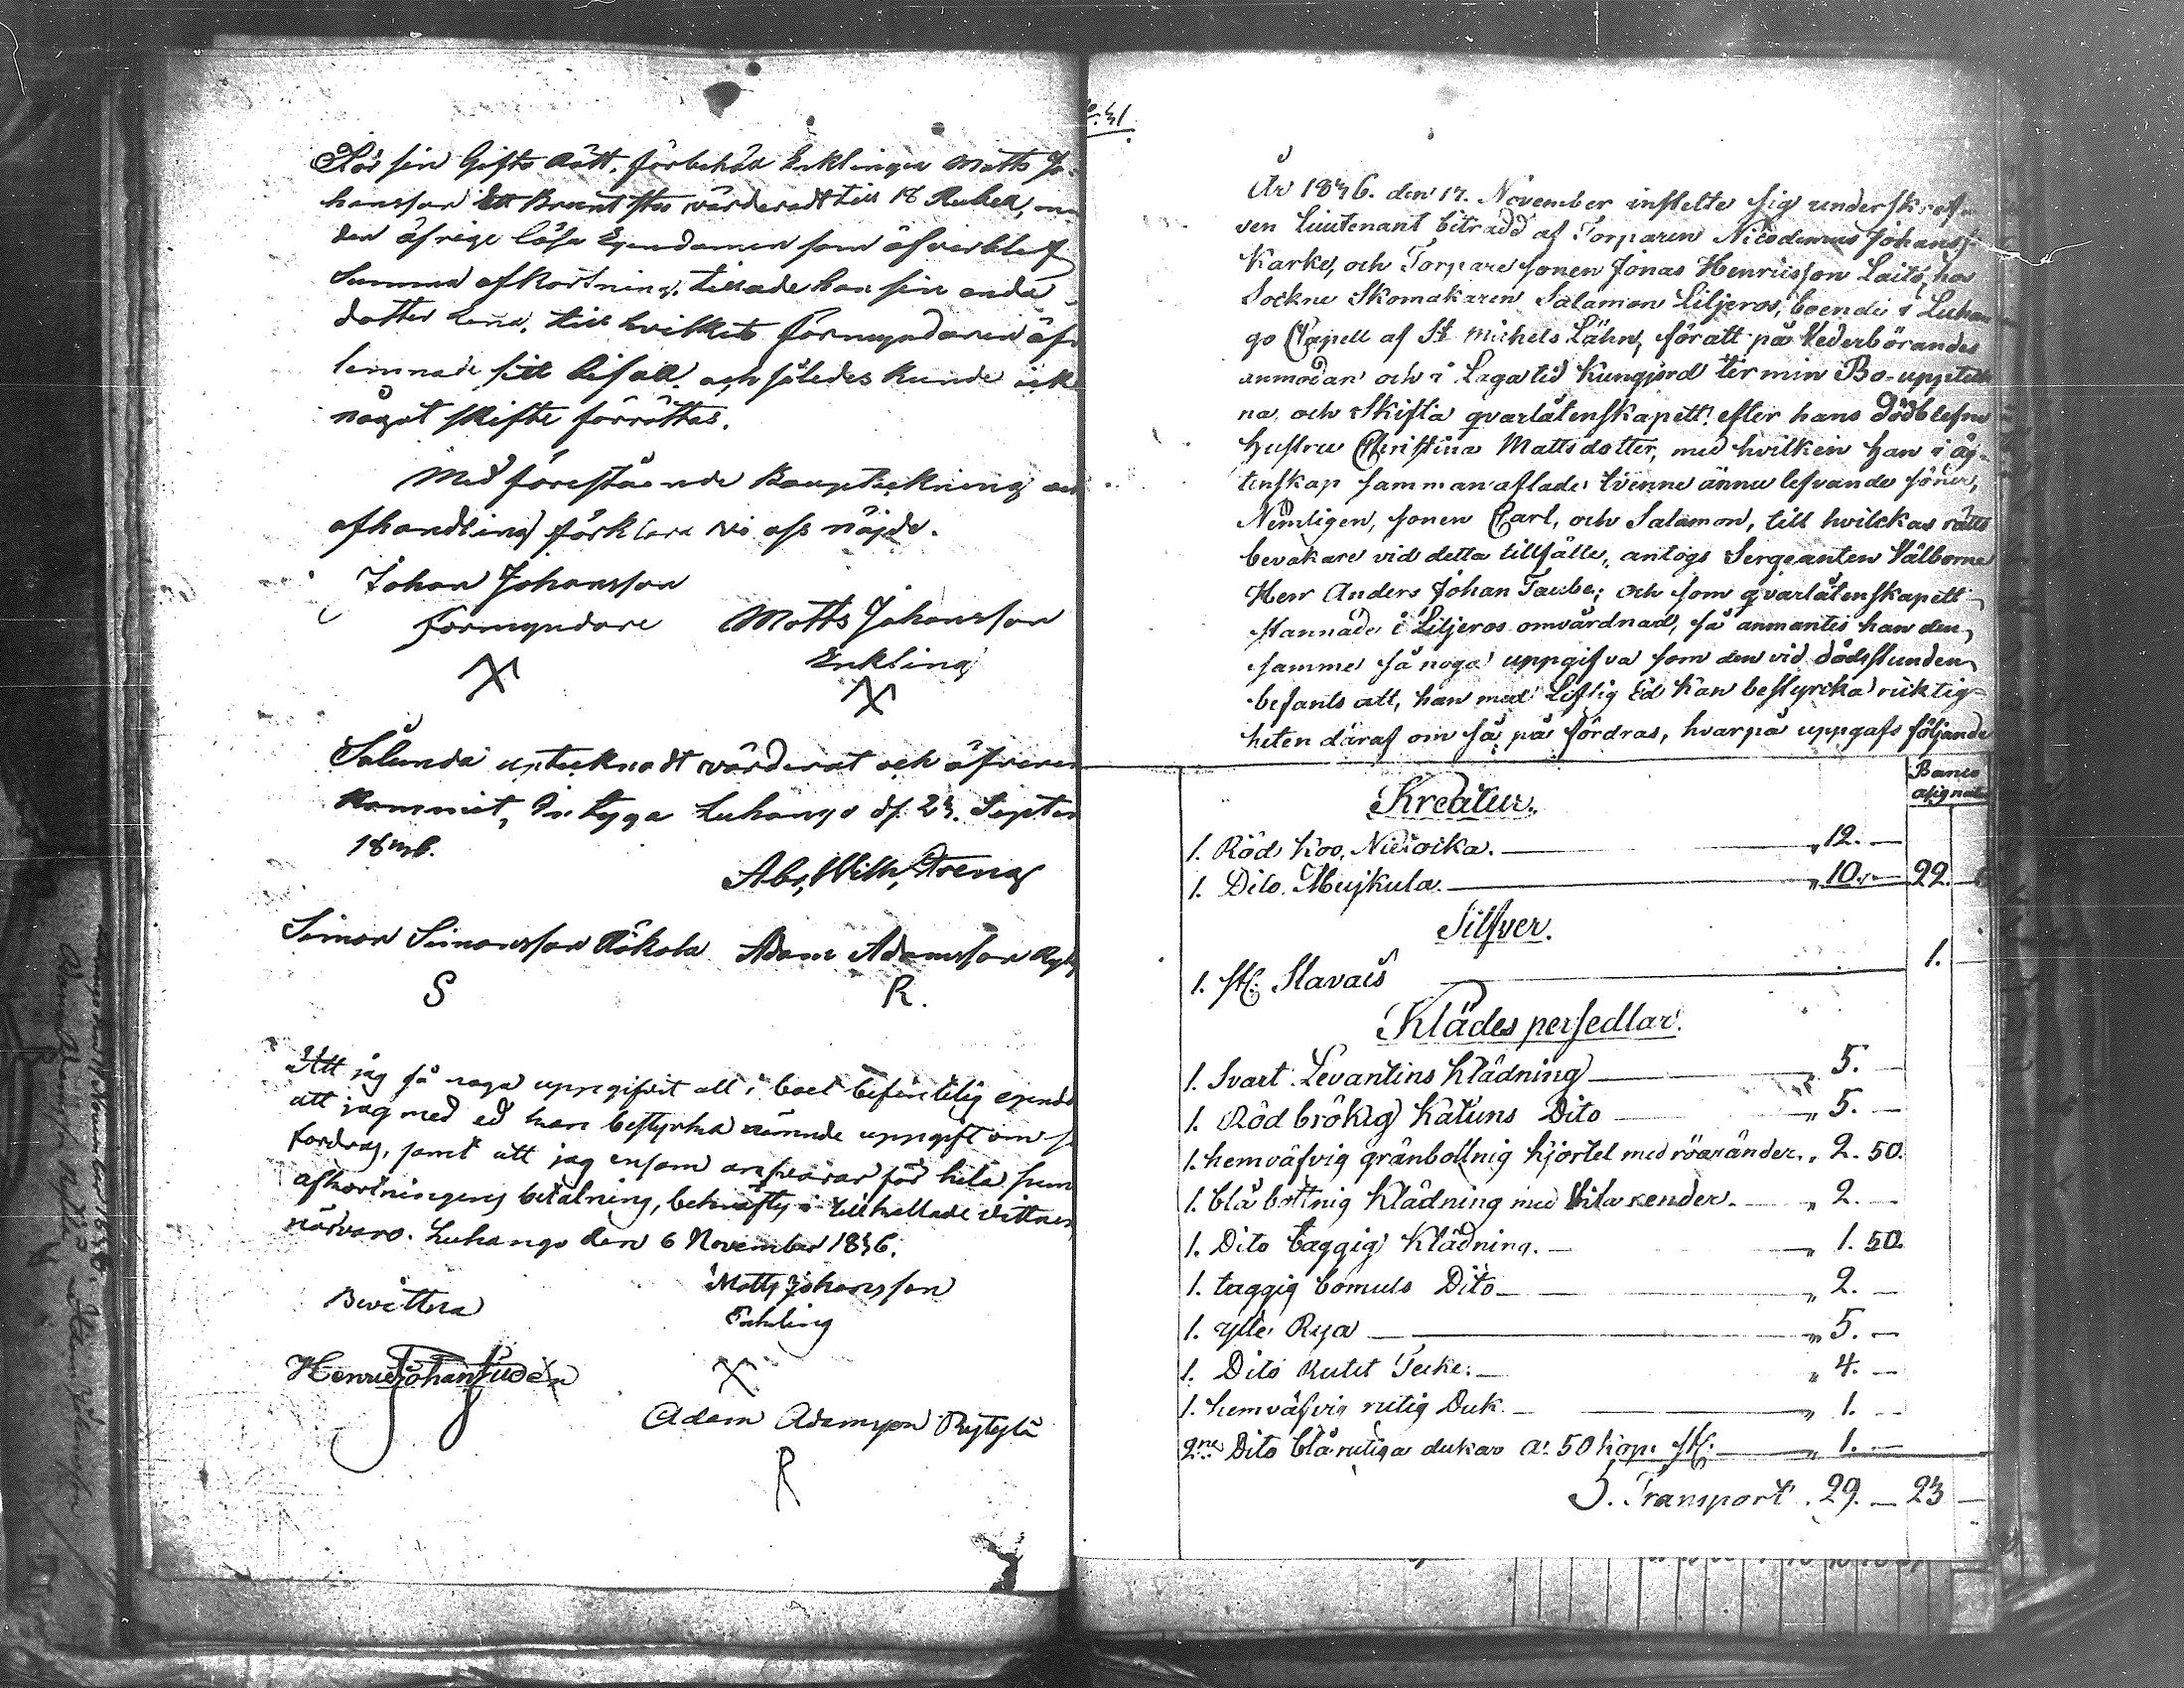 För sin Gifto Rätt, förbehöll Enklingen Matts Jo-
hansson Ett Brunt Sto värderadt till 18 Rubel, 
den öfrige lösa Egendomen som öfverblef
Summa afkortning, tillade han sin enda
dotter Lena, till hvilket Förmyndaren äf
lemnade sitt bifall, och således kunde ick
något skifte förrättas.
Med förestående Bouptekning och
afhandling förklara vi oss nöjde.
Johan Johansson
Förmyndare
Matts Johansson
Enkling
X
X
Sålunda uptecknadt värderat och öfverens
kommit, Intyga Luhango d. 23. Septem
1836.
Abr. Wilh.
Simon Simonsson Adam Adamsson
S R.
Att jag så noga uppgifvit all i boet befintelig egendo
att jag med ed kan bestyrka nämnde uppgift om så
fordras, samt att jag ensam ansvarar för hela sum
afkortningens betalning, bekräftas i tillkallade vittnens
närvaro. Luhango den 6 November 1836.
Bevittna
Matts Johansson
Enkling
Henric Johan
X
Adam Adamsson Rytylä
R
41
År 1836. den 17. November instelte sig underskref-
ven Lieutenant biträdd af Torparen Nicodemus Johanss:
Karke, och Torpare sonen Jonas Henricsson Laito, hos
Sockne Skomakaren Salamon Liljeros, boende i Luhan
go Capell af St Michels Lähn, för att på Vederbörandes
anmodan och i Laga tid kungjord termin Bo-uppteck
na och Skifta qvarlåtenskapett efter hans dödblefne
Hustru Christina Mattsdotter, med hvilken han i äg-
tenskap sammanaflade tvenne ännu lefvande söner,
Nemligen, sonen Carl, och Salamon, till hvilckas rätts
bevakare vid detta tillfälle, antogs Sergeanten Välborne
Herr Anders Johan Taube; och som qvarlåtenskapett
stannade i Liljeros omvårdnad, så anmantes han den
samme så noga uppgifva som den vid dödsstunden
befants att, han med Liflig Ed kan bestyrka ricktig-
heten däraf om så på fördras, hvarpå uppgafs följande
Banco
asignat
Kreatur.
1. Röd Koo, „ 12. —
1. Dito. Mujkula. „ 10. — 22.
Silfver.
1. st: Slavais 1. —
Klädes persedlar.
1. Svart Levantins Klädning „ 5. —
1. Röd brökig Katuns Dito „ 5. —
1. hemväfvig grånbottnig kjortel med röaränder. „ 2. 50.
1. blå bottnig klädning med hita render. „ 2. —
1. Dito taggig Klädning. „ 1. 50.
1. taggig bomuls Dito „ 2. —
1. ylle Rya „ 5. —
1. Dito Rutit Tecke. „ 4. —
1. hemväfvig rutig Duk „ 1. —
2ne Dito blårutiga dukar a: 50 kop: st: „ 1. —
S. Transport . 29. — 23 —